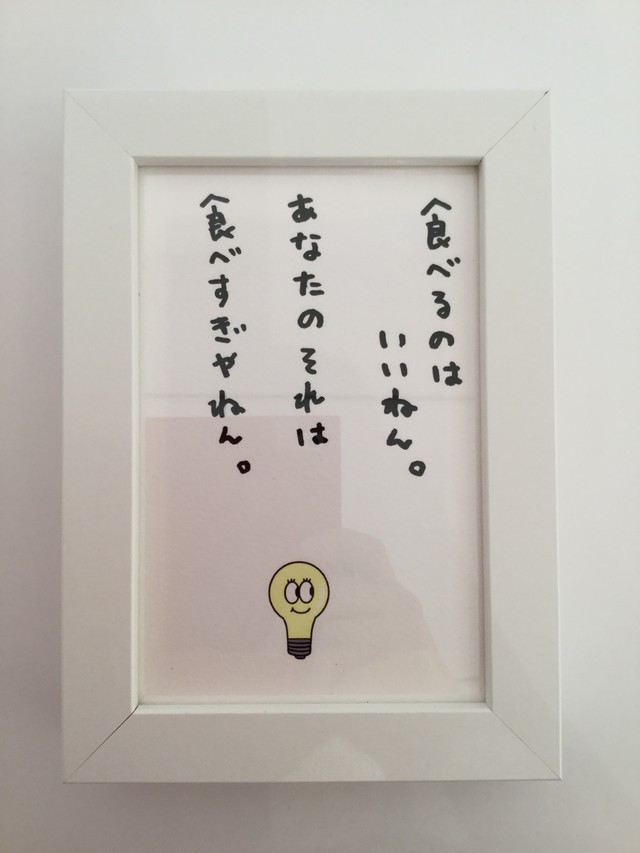 食べるのは
いいねん。
あなたのそれは
食べすぎやねん。